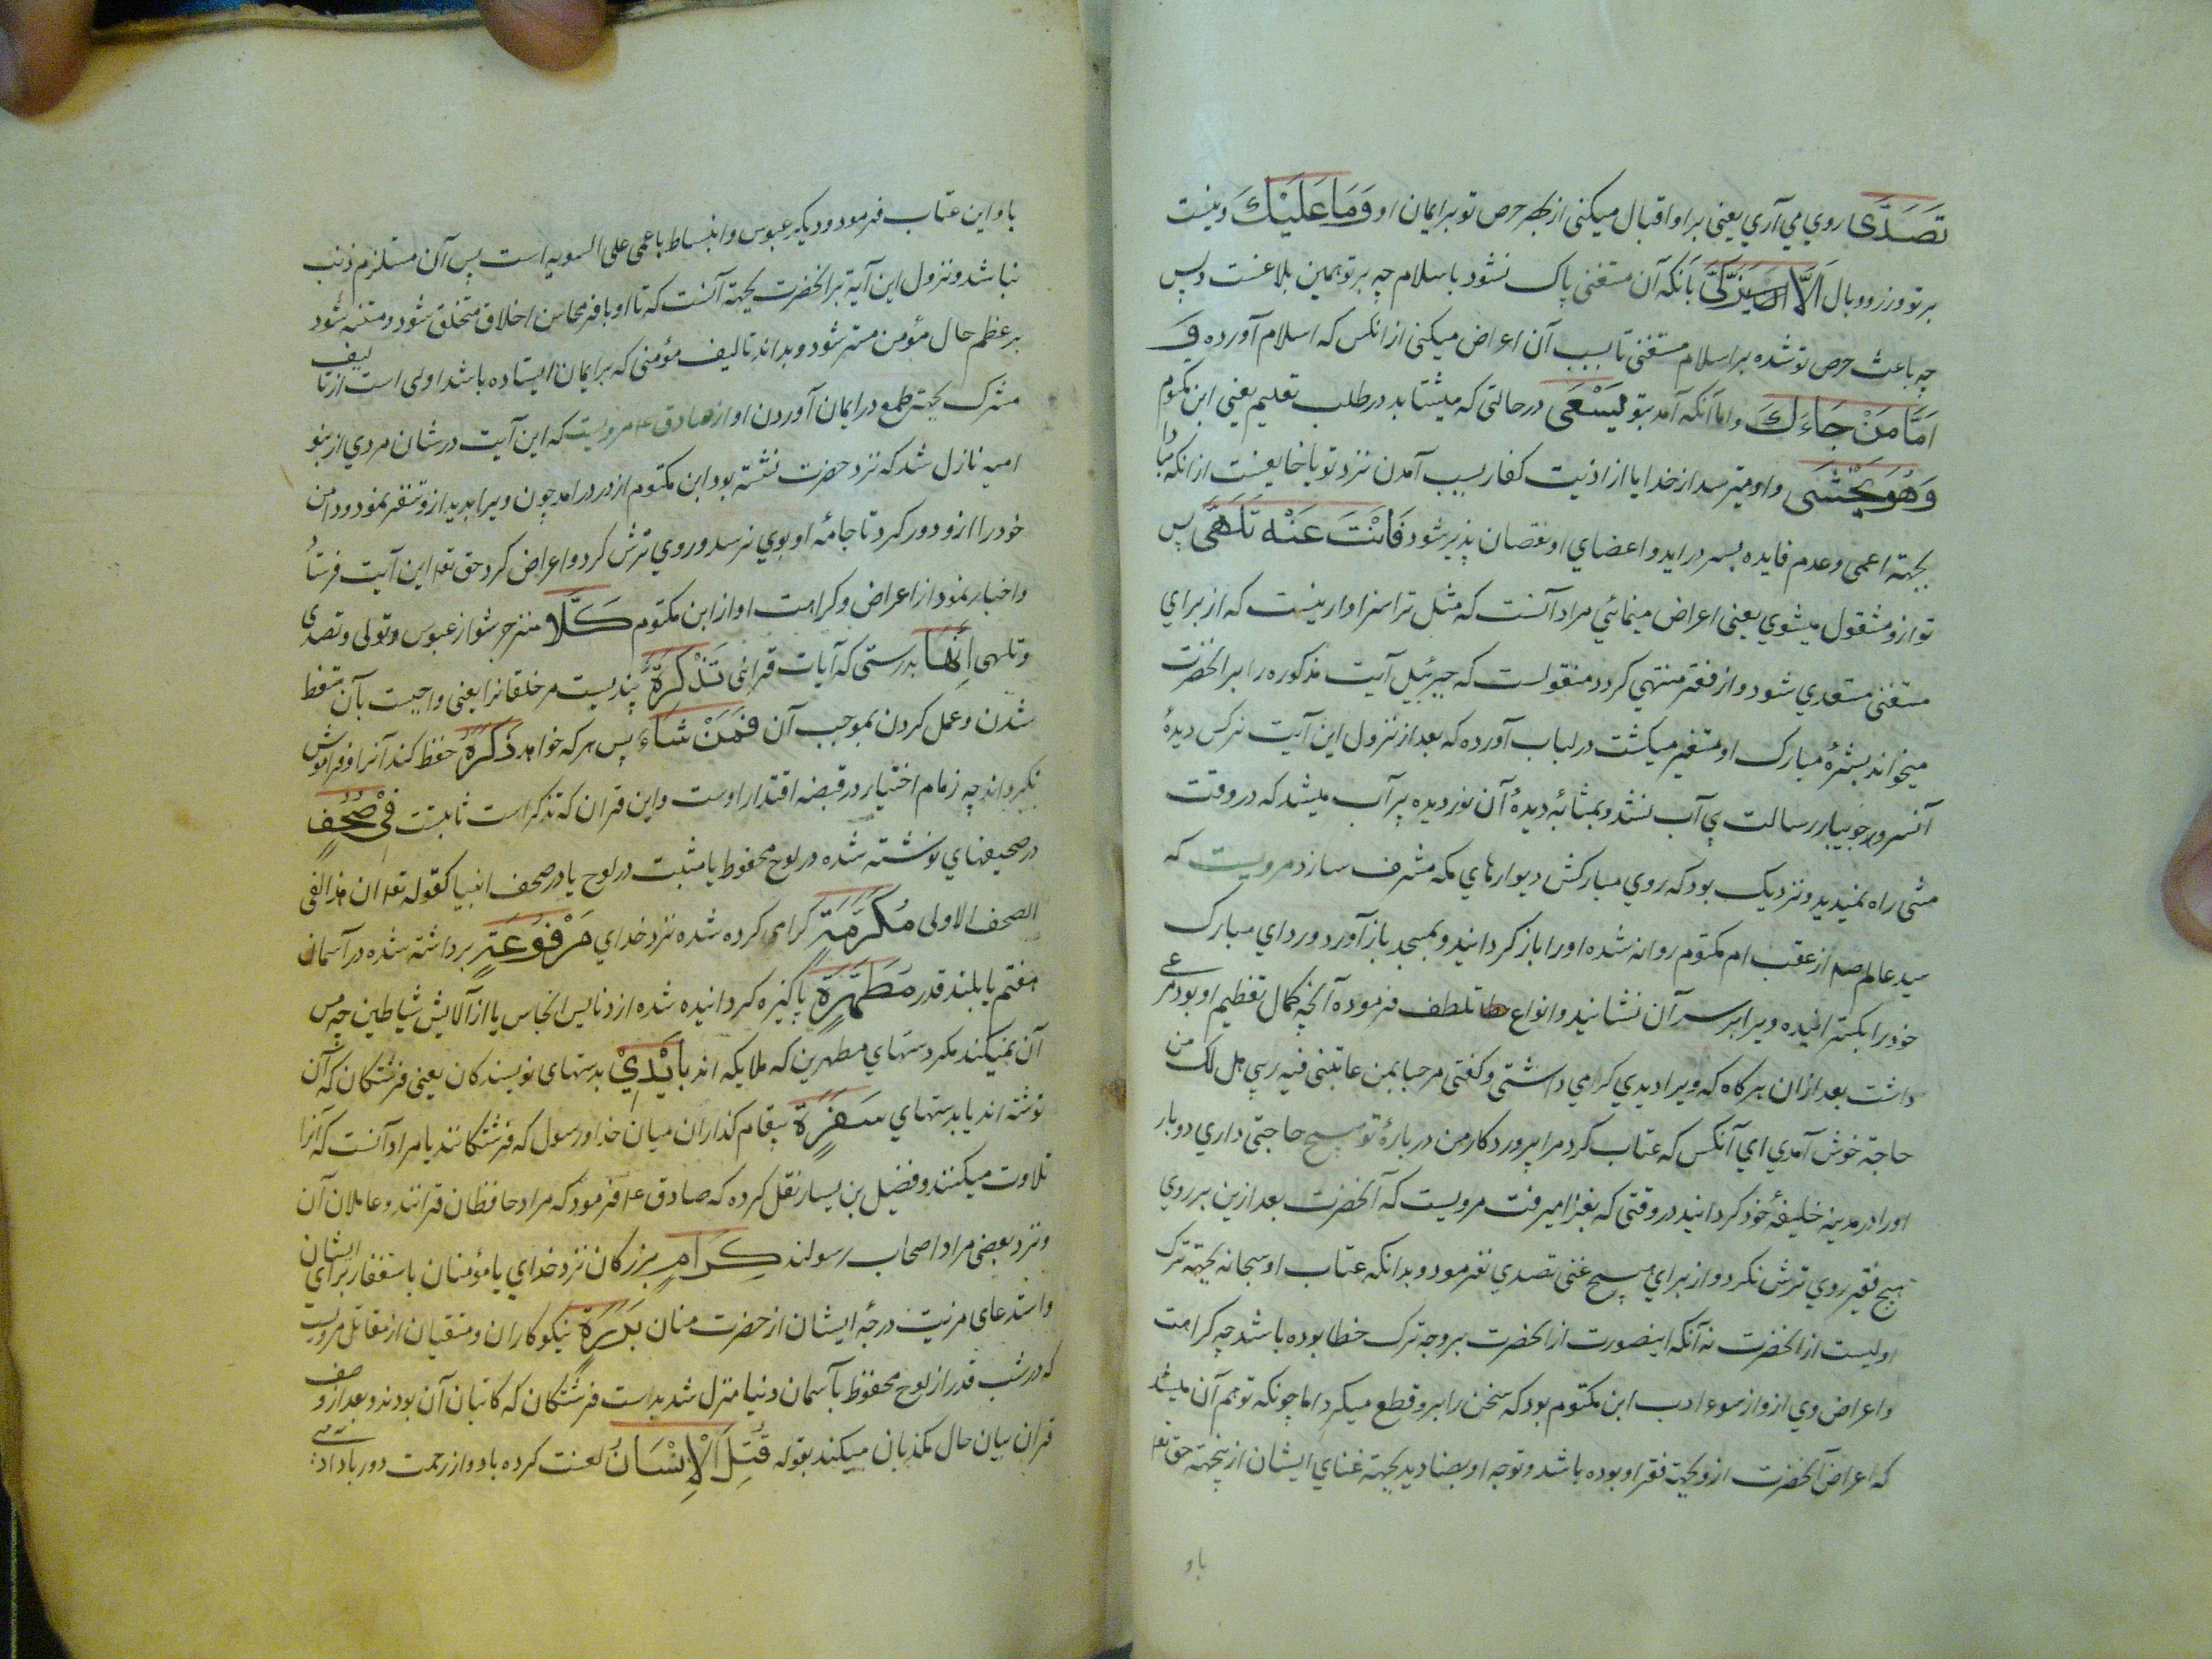 تَصَدّٰى روي مي آري يعني براو اقبال ميكنى از بهر حرص تو برايمان او وَمَا عَلَيْكَ ونيست
بر تو وزر ووبال اَلَّا يَزَّكّٰى بآنكه آن مستغنى پاك نشود باسلام چه بر تو همين بلاغست وپس
چه باعث حرص تو شده بر اسلام مستغنى تا بسبب آن اعراض ميكنى از انكس كه اسلام آورده وَ
اَمَّا مَنْ جَاءَكَ واما آنكه آمد بتو يَسْعٰى در حالتى كه ميشتابد در طلب تعليم يعني ابن مكتوم
وَهُوَ يَخْشٰى واو ميترسد از خدا يا از اذيت كفار بسبب آمدن نزد تو يا خايفست از انكه مبادا
بجهة اعمى وعدم قايده بسر در ايد واعضاي او نقصان پذير شود فَاَنْتَ عَنْهُ تَلَهّٰى پس
تو ازو مشغول ميشوي يعنى اعراض مينمائي مراد آنست كه مثل ترا سزاوار نيست كه از براي
مستغنى متصدي شود واز فقير منتهي كردد منقولست كه جبرئيل آيت مذكوره را بر انحضرت
ميخواند بشرۀ مبارك او متغير ميكشت در لباب آورده كه بعد از نزول اين آيت نركس ديدۀ
آنسرور جويبار رسالت پي آب نشد وبمثابۀ ديدۀ آن نور ديده پر آب ميشد كه در وقت
مشى راه نميديد ونزديك بود كه روي مباركش ديوارهاي مكه مشرف سازد مرويست كه
سيد عالم صلم از عقب ام مكتوم روانه شده اورا باز كردانيد وبمسجد باز آورد ورداي مبارك
خودرا بكسترانيده ويرا بر سر آن نشانيد وانواع تلطف فرموده آنچه كمال تعظيم او بود مرعي
داشت بعد از ان هركاه كه ويرا ديدي كرامي داشتى وكفتى مرحبا بمن عاتبنى فيه ربي هل لك من
حاجة خوش آمدي اي آنكس كه عتاب كرد مرا پروردكار من در بارۀ تو هيچ حاجتى داري دوبار
اورا در مدينه خليفۀ خود كردانيد در وقتى كه بغزا ميرفت مرويست كه آنحضرت بعد ازين بر روي
هيچ فقير روي ترش نكرد واز براي هيچ غنى تصدي نفرمود وبدانكه عتاب او سبحانه بجهة ترك
اوليست از انحضرت نه آنكه اينصورت از انحضرت بر وجه ترك خطا بوده باشد چه كرامت
واعراض وي ازو از سوء ادب ابن مكتوم بود كه سخن را برو قطع ميكرد اما چونكه توهم آن ميشد
كه اعراض آنحضرت ازو بجهة فقر او بوده باشد وتوجه او بصناديد بجهة غناي ايشان ازينجهة حق تعه
باو
باو اين عتاب فرمود وديكر عبوس وانبساط باعمى على السويه است پس آن مستلزم ذنب
نباشد ونزول اين آية بر انحضرت بجهة آنست كه تا او باوفر محاسن اخلاق متخلق شود ومتنبه شود
بر عظم حال مؤمن مستر شود وبداند تاليف مؤمنى كه بر ايمان ايستاده باشد اولى است از تاليف
مشرك بجهة طمع در ايمان آوردن او از صادق ع مرويست كه اين آيت در شان مردي از بنو
اميه نازل شد كه نزد حضرت نشسته بود ابن مكتوم از در در امد چون ويرا بديد ازو تنفر نمود ودامن
خودرا ازو دور كرد تا جامۀ او بوي نرسد وروي ترش كرد واعراض كرد حق تعه اين آيت فرستاد
واخبار نمود از اعراض وكرامت او از ابن مكتوم كَلَّا منزجر شو از عبوس وتولى وتصدى
وتلهى اِنَّهَا بدرستى كه آيات قرانى تَذْكِرَةٌ پنديست مر خلقانرا يعنى واجبست بآن متعظ
شدن وعمل كردن بموجب آن فَمَنْ شَاءَ پس هركه خواهد ذَكَرَهُ حفظ كند آنرا وفراموش
نكرداند چه زمام اختيار در قبضه اقتدار اوست واين قران كه تذكر است ثابتست فِى صُحُفٍ
در صحيفهاي نوشته شده در لوح محفوظ يا مثبت در لوح يا در صحف انبيا كقوله تعه ان هذا لفى
الصحف الاولى مُكَرَّمَةٍ كرامى كرده شده نزد خداي مَرْفُوعَةٍ برداشته شده در آسمان
هفتم يا بلند قدر مُطَهَّرَةٍ پاكيزه كردانيده شده از دنايس انجاس يا از آلايش شياطين چه مس
آن نميكنند مكر دستهاي مطهرين كه ملايكه اند بِاَيْدِيْ بدستهاى نويسندكان يعنى فرشتكان كه آن
نوشته اند يا بدستهاي سَفَرَةٍ پيغام كذاران ميان خدا ورسول كه فرشتكانند يا مراد آنست كه آنرا
تلاوت ميكنند وفضيل بن يسار نقل كرده كه صادق ع فرمود كه مراد حافظان قرانند وعاملان آن
ونزد بعضى مراد اصحاب رسولند كِرَامٍ بزركان نزد خداي يا مؤمنان باستغفار براى ايشان
واستدعاى مزيت درجۀ ايشان از حضرت منان بَرَرَةٍ نيكوكاران ومتقيان از مقاتل مرويست
كه در شب قدر از لوح محفوظ بآسمان دنيا منزل شد بدست فرشتكان كه كاتبان آن بودند وبعد از وصف
قران بيان حال مكذبان ميكند بقوله قُتِلَ الْاِنْسَانُ لعنت كرده باد واز رحمت دور باد آدمي